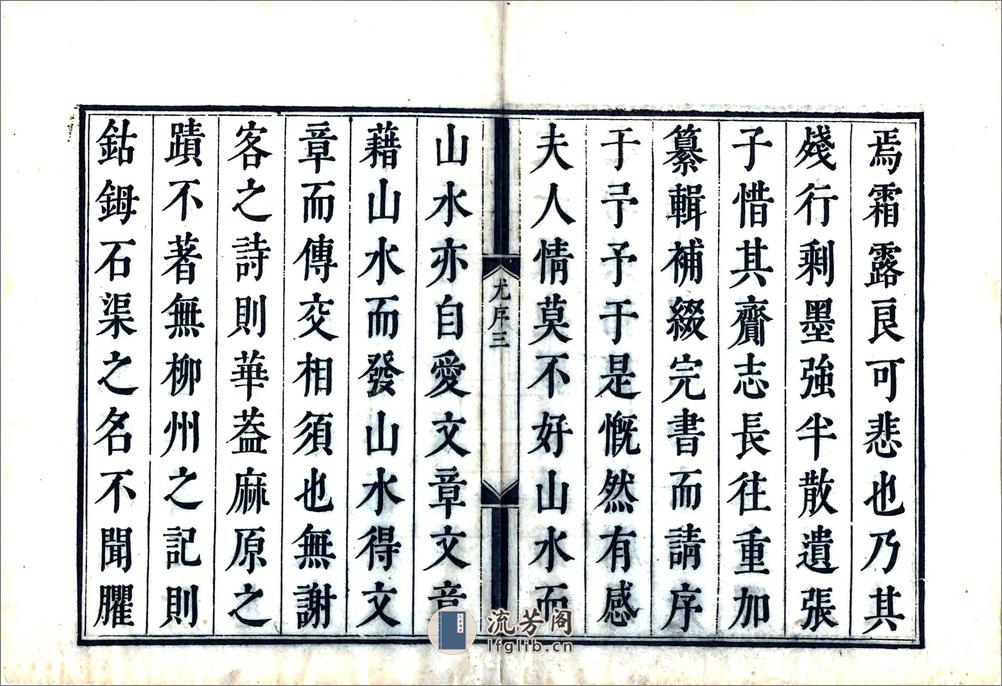 焉霜露良可悲也乃其
殘行剩墨強半散遺張
子惜其齎志長往重加
纂輯補綴完書而請序
于予予于是慨然有感
夫人情莫不好山水而
尤序三
山水亦自愛文章文章
藉山水而發山水得文
章而傳交相須也無謝
客之詩則華葢麻原之
蹟不著無柳州之記則
鈷鉧石渠之名不聞臞
流芳阁
lfglib.cn